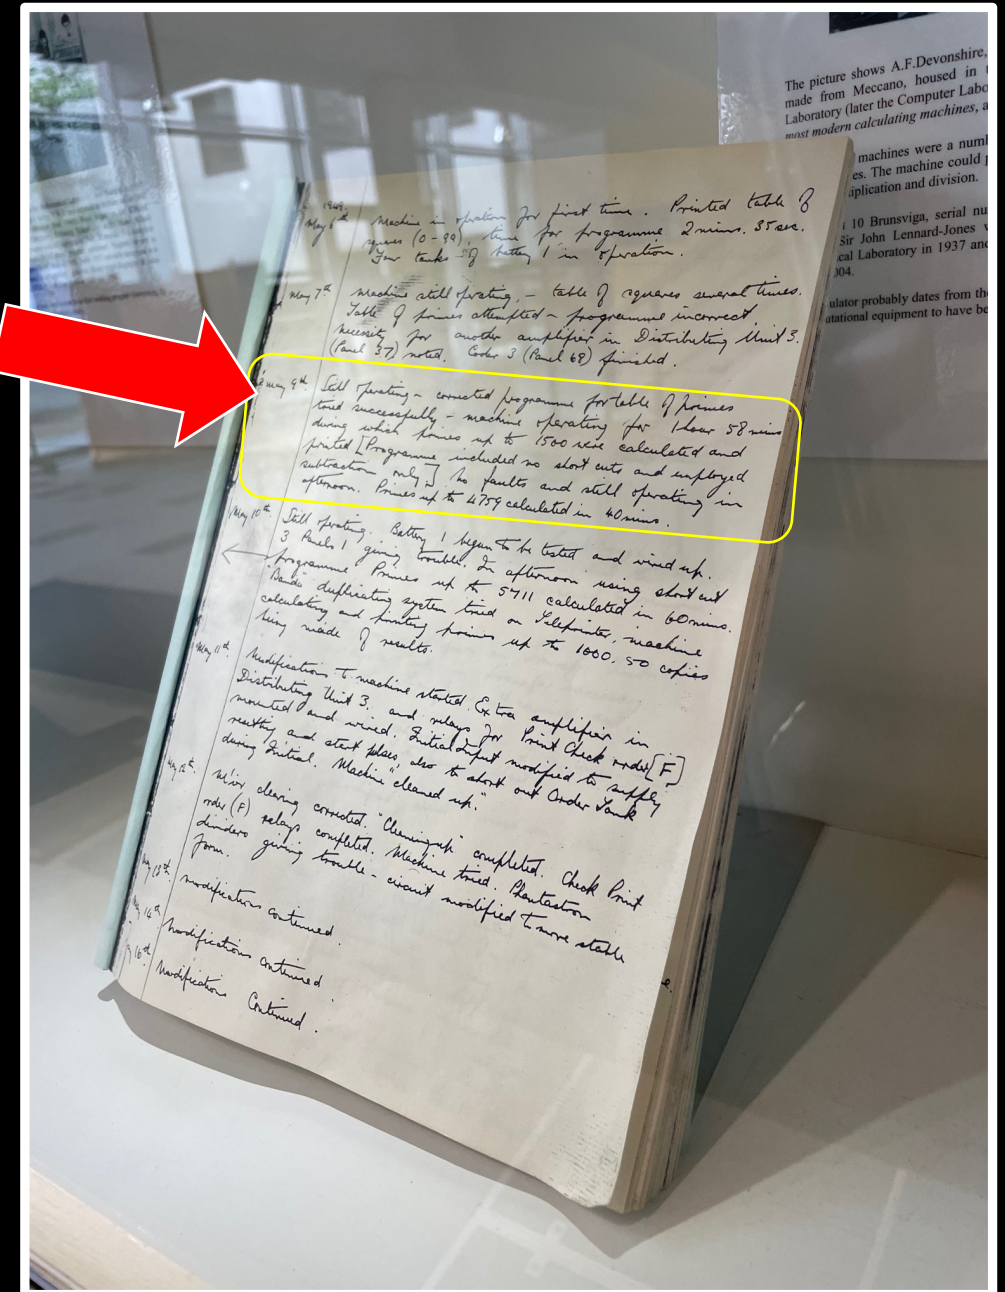 The picture shows A.F.Devonshire,
made from Meccano, housed in
Laboratory (later the Computer Labo
most modern calculating machines, a
machines were a numb
es. The machine could p
iplication and division.
10 Brunsviga, serial nu
Sir John Lennard-Jones
cal Laboratory in 1937 and
004.
ulator probably dates from the
utational equipment to have be
1949.
May 6th Machine in operation for first time. Printed table of
squares (0-99), time for programme 2 mins. 35 sec.
Four tanks of battery 1 in operation.
May 7th Machine still operating, - table of squares several times.
Table of primes attempted - programme incorrect
Necessity for another amplifier in Distributing Unit 3.
(Panel 37) noted. Coder 3 (Panel 68) finished.
May 9th Still operating - corrected programme for table of primes
tried successfully - machine operating for 1 hour 58 mins
during which primes up to 1500 were calculated and
printed [Programme included no short cuts and employed
subtraction only] No faults and still operating in
afternoon. Primes up to 4759 calculated in 40 mins.
May 10th Still operating. Battery 1 began to be tested and wired up.
3 Panels 1 giving trouble. In afternoon using short cut
programme Primes up to 5711 calculated in 60 mins.
Banda duplicating system tried on Teleprinter, machine
calculating and printing primes up to 1000, 50 copies
being made of results.
May 11th Modification to machine started. Extra amplifier in
Distributing Unit 3, and relays for Print Check order [F]
mounted and wired. Initial Input modified to supply
resetting and start pulses, also to short out Order Tank
during Initial. Machine "cleaned up."
May 12th clearing corrected. "Cleaning up" completed. Check Print
order (F) relays completed. Machine tried. Phantastron
dividers giving trouble - circuit modified to more stable
form.
May 13th Modifications continued.
May 14th Modifications continued.
16th Modifications Continued.